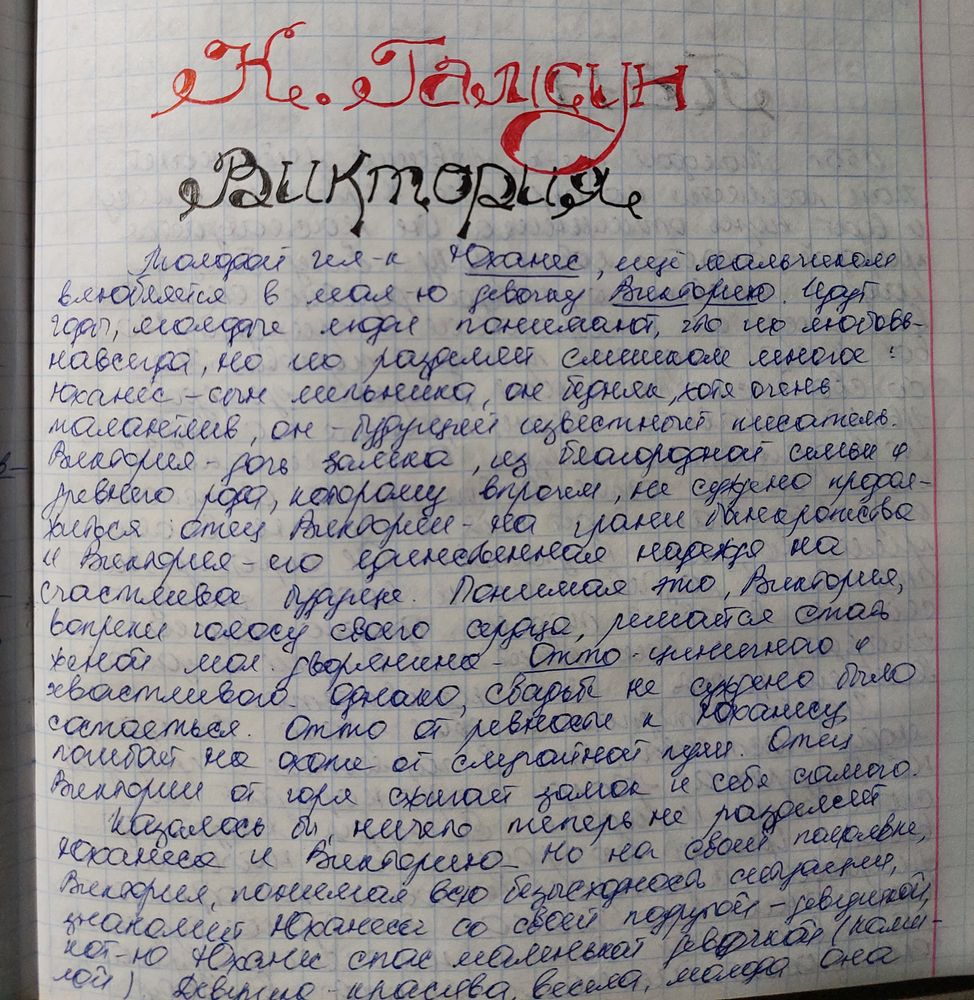 К. Гамсун
Виктория
Молодой чел-к Юханес, ещё мальчиком
влюбляется в мал-ю девочку Викторию. Идут
годы, молодые люди понимают, что их любовь-
навсегда, но их разделяет слишком многое:
Юханес - сын мельника, он бедняк, хотя очень
талантлив, он - будущий известный писатель.
Виктория - дочь замка, из благородной семьи и
древнего рода, которому впрочем, не суждено продол-
житься: отец Виктории - на грани банкротства
и Виктория - его единственная надежда на
счастливое будущее. Понимая это, Виктория,
вопреки голосу своего сердца, решается стать
женой мол. дворянина - Отто - циничного и
хвастливого. Однако, свадьбе не суждено было
состояться. Отто от ревности к Юханесу
погибает на охоте от случайной пули. Отец
Виктории от горя сжигает замок и себя самого.
Казалось бы, ничего теперь не разделяет
Юханеса и Викторию. Но на своей помолвке,
Виктория, понимая всю безысходность ситуации,
знакомит Юханеса со своей подругой - девушкой,
кот-ю Юханес спас маленькой девочкой (Ками-
лой). Девушка - красива, весела, молода она